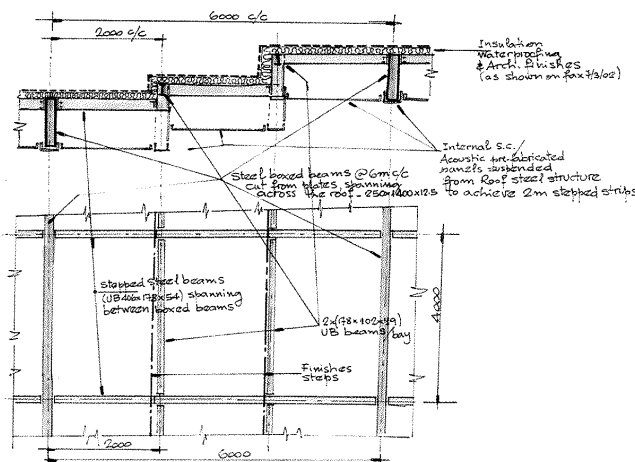 6000 c/c
2000 c/c
Insulation
Waterproofing
& Arch. Finishes
(as shown on fax 7/3/02)
Internal S.C./
Acoustic pre-fabricated
panels suspended
from Roof steel structure
to achieve 2m stepped strips
Steel boxed beams @ 6m c/c
cut from plates, spanning
across the roof - 250x1400x12.5
stepped steel beams
(UB 406x178x54) spanning
between boxed beams
UB beams/bay
4000
Finishes
steps
2000
6000